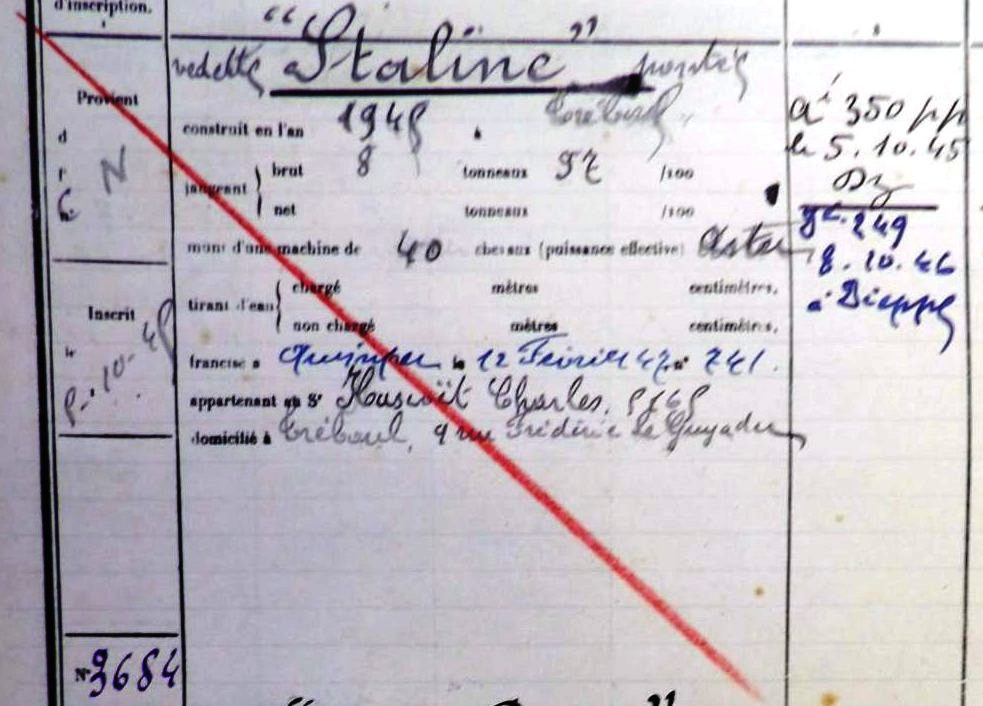 d'inscription.
"Staline"
vedette pontée
Provient
construit en l'an 1945 à Tréboul
d
r
N
brut 8 tonneaux 97 /100
jaugeant
net tonneaux /100
muni d'une machine de 40 chevaux (puissance effective) Aster
chargé mètres centimètres,
tirant d'eau
non chargé mètres centimètres,
francisé à Quimper le 12 Février 47 n° 241.
appartenant au Sr Charles,
domicilié à Tréboul, 9 rue Frédéric Le Guyader
Inscrit
le
5.10.45
N° 3684
a 350
le 5.10.45
Dz
249
8.10.46
à Dieppe